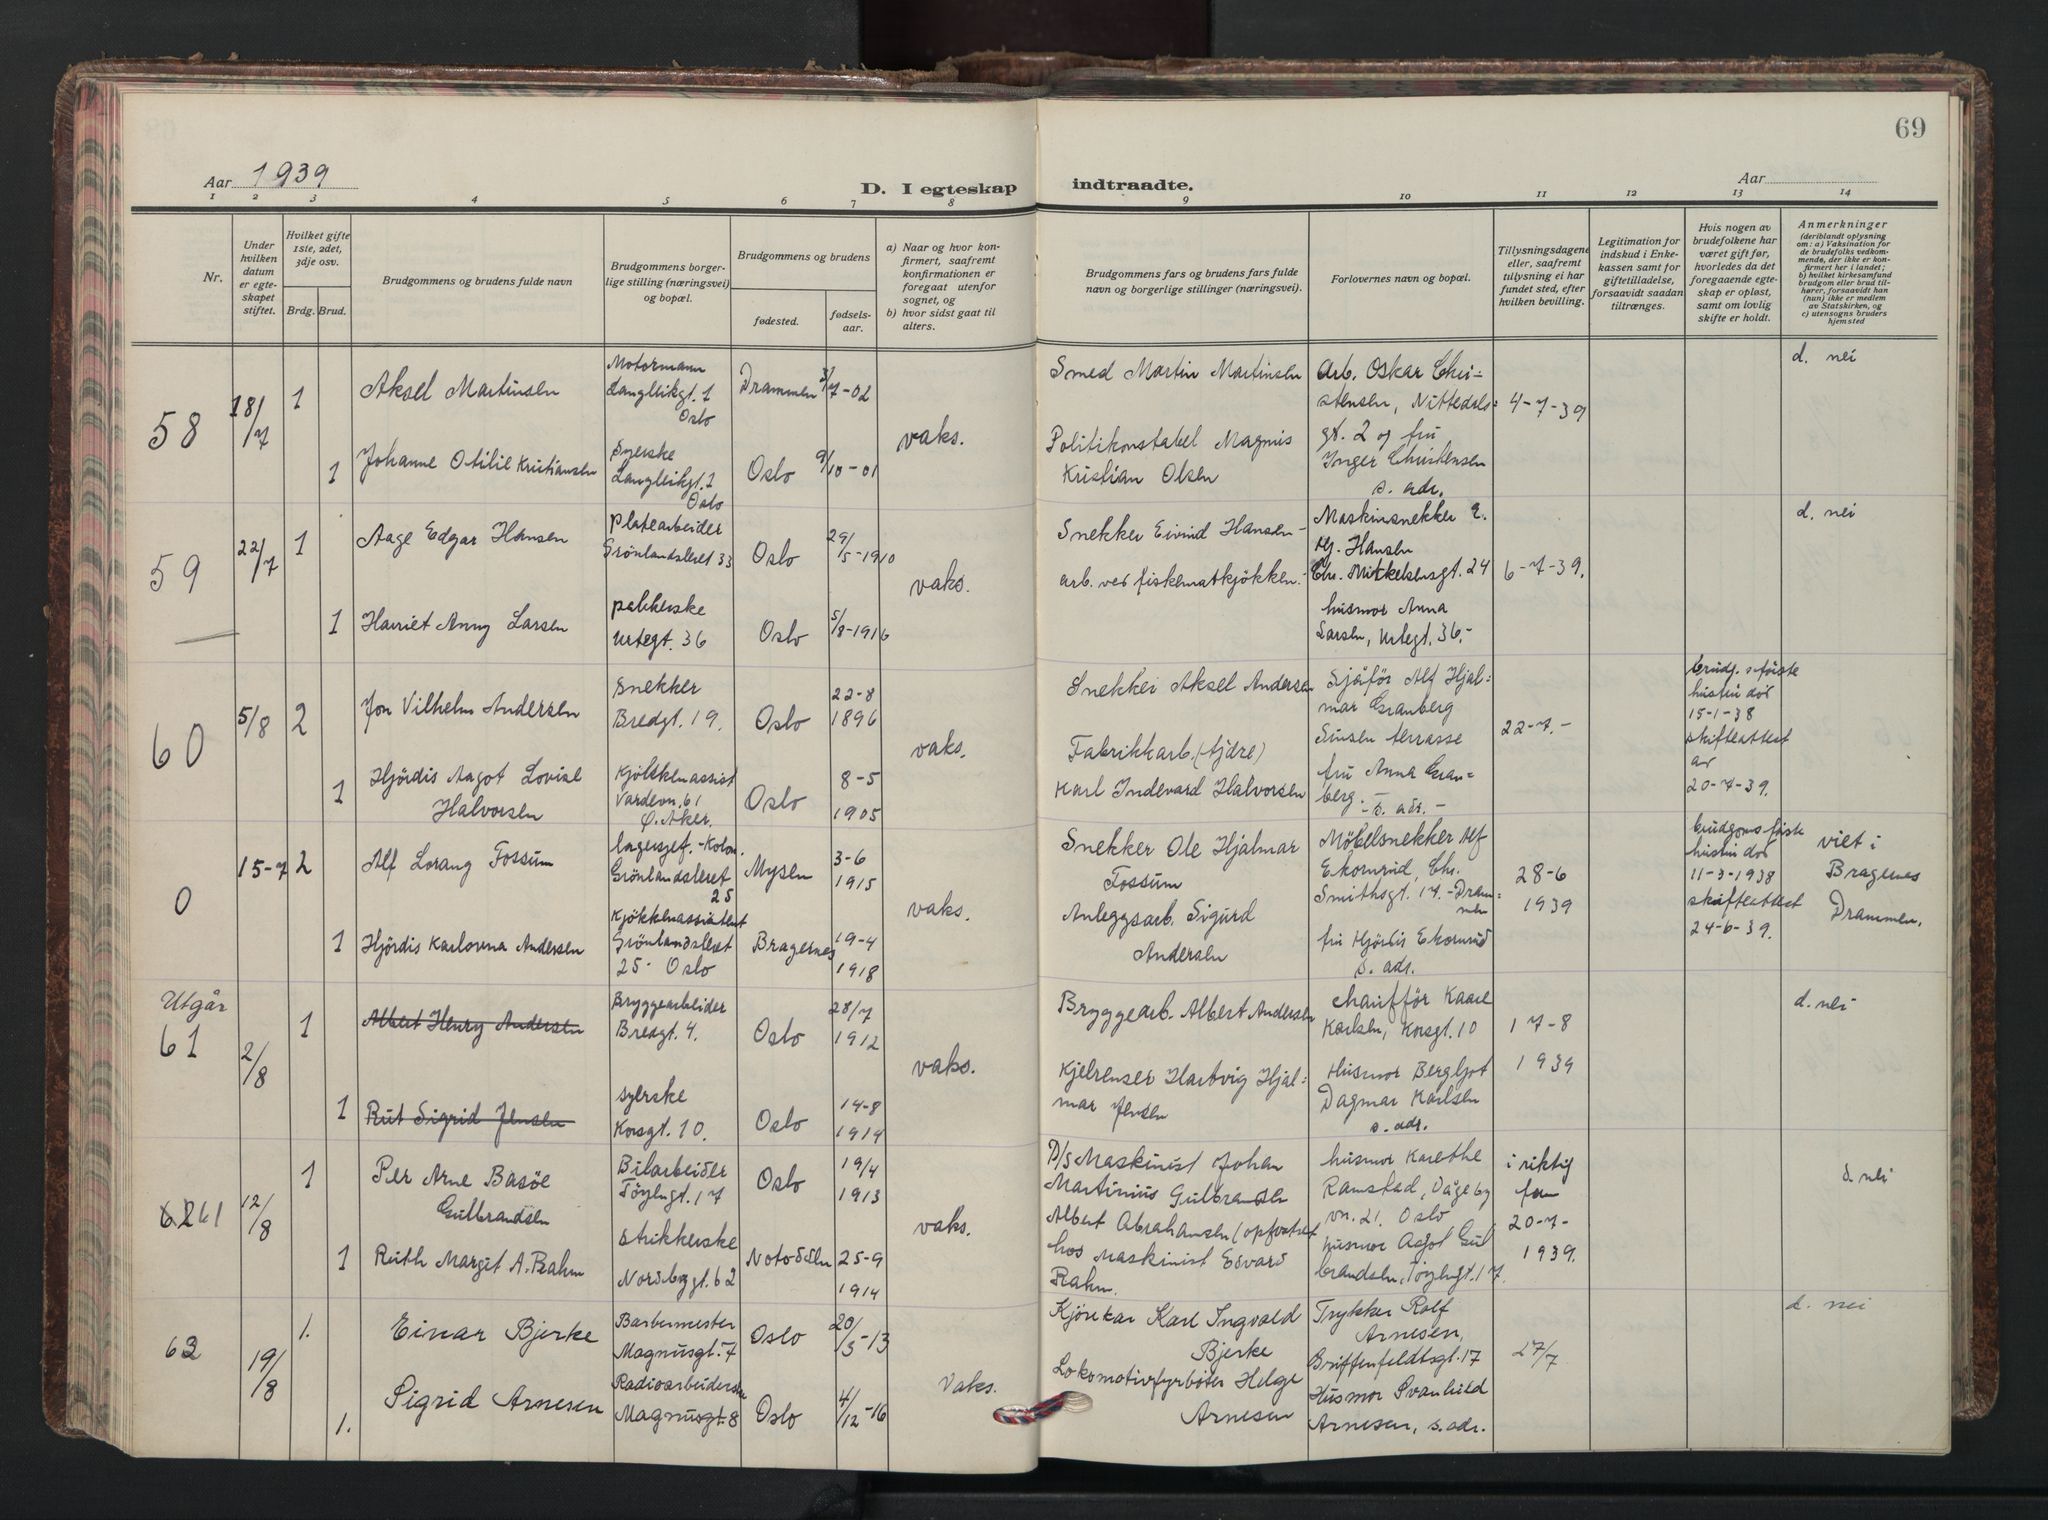 69
Aar 1939
D. I egteskap indtraadte.
Aar
1 2 3 4 5 6 7 8 9 10 11 12 13 14
Nr.
Under hvilken datum er egteskapet stiftet.
Hvilket gifte 1ste, 2det, 3dje osv.
Brdg. Brud.
Brudgommens og brudens fulde navn
Brudgommens borgerlige stilling (næringsvei) og bopæl.
Brudgommens og brudens
fødested.
fødselsaar.
a) Naar og hvor konfirmert, saafremt konfirmationen er foregaat utenfor sognet, og
b) hvor sidst gaat til alters.
Brudgommens fars og brudens fars fulde navn og borgerlige stillinger (næringsvei).
Forlovernes navn og bopæl.
Tillysningsdagene eller, saafremt tillysning ei har fundet sted, efter hvilken bevilling.
Legitimation for indskud i Enkekassen samt for giftetilladelse, forsaavidt saadan tiltrænges.
Hvis nogen av brudefolkene har været gift før, hvorledes da det foregaaende egteskap er opløst, samt om lovlig skifte er holdt.
Anmerkninger
(deriblandt oplysning om: a) Vaksination for de brudefolks vedkommende, der ikke er konfirmert her i landet; b) hvilket kirkesamfund brudgom eller brud tilhører, forsaavidt han (hun) ikke er medlem av Statskirken, og c) utensogns bruders hjemsted
58
18/7
1
Aksel Martinsen
Motormann
Langleikgt. 1
Oslo
Drammen
3/7-02
vaks.
Smed Martin Martinsen
Arb. Oskar Chri-
stensen, Nittedals=
gt. 2 og fru
Inger Christensen
s. adr.
4-7-39
d. nei
1
Johanne Otilie Kristiansen
Syerske
Langleikgt. 1
Oslo
Oslo
9/10-01
Politikonstabel Magnus
Kristian Olsen
59
22/7
1
Aage Edgar Hansen
Platearbeider
Grönlandsleret 33
Oslo
29/5-1910
vaks.
Snekker Eivind Hansen-
Maskinsnekker E.
Hj. Hansen
Chr. Mickelsensgt. 24
husmor Anna
Larsen, Urtegt. 36.-
6-7-39.
d. nei
1
Harriet Anny Larsen
pakkerske
Urtegt. 36
Oslo
5/8-1916
arb. ved fiskematkjökken.-
60
5/8
2
Jon Vilhelm Andersen
Snekker
Bredgt. 19.
Oslo
22-8
1896
vaks.
Snekker Aksel Andersen
Sjåför Alf Hjal=
mar Granberg
Sinsen terrasse
fru Anna Gran=
berg.- s. adr.-
22-7.-
brudg. förste
hustru död
15-1-38
skifteattest
av
20-7-39.
1
Hjördis Aagot Lovise
Halvorsen
Kjökkenassist
Vardevn. 61
Ö. Aker.
Oslo
8-5
1905
Fabrikkarb. (fjdre)
Karl Indevard Halvorsen
0
15-7
2
Alf Lorang Fossum
lagersjef.-Kolon.
Grönlandsleret
25
Mysen
3-6
1915
vaks.
Snekker Ole Hjalmar
Fossum
Möbelsnekker Alf
Ekornrud, Chr.
Smithsgt. 17.-Dram-
men
fru Hjördis Ekornrud
s. adr.
28-6
1939
brudgoms förste
hustru död
11-3-1938
skifteattest
24-6-39.
viet i
Bragernes
Drammen.
1
Hjördis Karlovna Andersen
Kjökkenassistent
Grönlandsleret
25- Oslo
Bragernes
19-4
1918
Anleggsarb. Sigurd
Andersen
Utgår
61
2/8
1
Albert Henry Andersen
Bryggearbeider
Bredgt. 4.
Oslo
28/7
1912
vaks.
Bryggearb. Albert Andersen
Chaufför Kaare
Karlsen, Korsgt. 10
Husmor Bergljot
Dagmar Karlsen
s. adr.
17-8
1939
d. nei
1
Rut Sigrid Jensen
syerske
Korsgt. 10.
Oslo
14-8
1914
Kjelrenser Hartvig Hjal=
mar Jensen
62 61
12/8
1
Per Arne Basöe
Gulbrandsen
Bilarbeider
Töyengt. 17
Oslo
19/4
1913
vaks.
D/S Maskinist Johan
Martinius Gulbrandsen
husmor Karethe
Ramstad, Dågeby
vn. 21. Oslo
husmor Aagot Gul
brandsen, Töyengt. 17.
i riktig
20-7-
1939.
d. nei
1
Ruth Margit A. Rahm
strikkerske
Nordbygt. 62
Notodden
25-9
1914
Albert Abrahamsen (opfostret
hos Maskinist Edvard
Rahm.
62
19/8
1.
Einar Bjerke
Barbermester
Magnusgt. 7
Oslo
20/5-13
Vaks.
Kjörekar Karl Ingvald
Bjerke
Trykker Rolf
Arnesen,
Griffenfeldtsgt. 17
Husmor Svanhild
Arnesen, s. adr.
27/7
d. nei
1.
Sigrid Arnesen
Radioarbeiderske
Magnusgt. 8
Oslo
4/12-16
Lokomotivfyrböter Helge
Arnesen